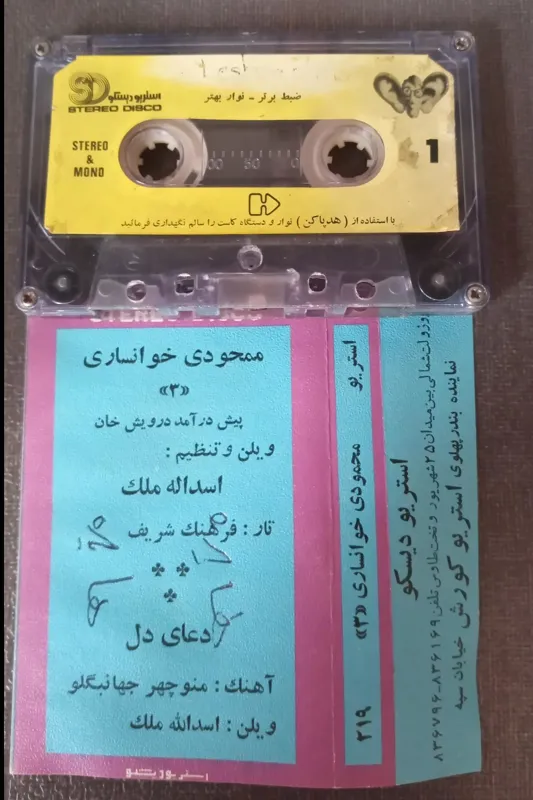 استریو دیسکو
STEREO DISCO
ضبط برتر - نوار بهتر
STEREO
&
MONO
1
00 50 0
با استفاده از ( هدپاکن ) نوار و دستگاه کاست را سالم نگهداری فرمائید
STEREO DISCO
ممحودی خوانساری
«۳»
پیش درآمد درویش خان
ویلن و تنظیم :
اسداله ملك
تار : فرهنك شریف
دعای دل
آهنك : منوچهر جهانبگلو
ویلن : اسدالله ملك
استریو دیسکو
استریو
محمودی خوانساری «۳»
۲۱۹
استریو دیسکو
روزولت شمالی بین میدان ۲۵ شهریور و تخت طاوس تلفن ۸۳۶۱۶۹-۸۳۶۷۹۶
نماینده بندر پهلوی استریو کورش خیابان سپه